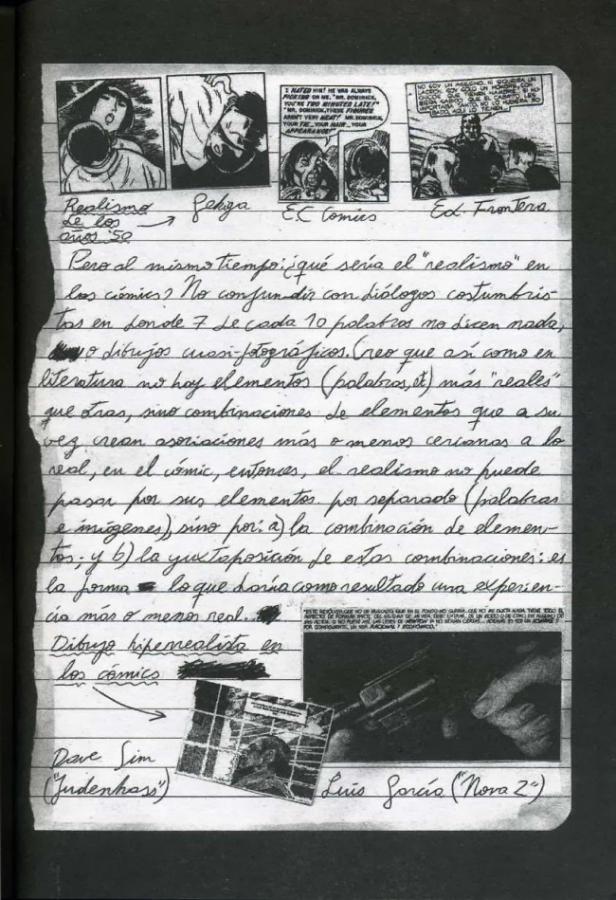 I HATED HIM! HE WAS ALWAYS
PICKING ON ME. "MR. DOMINICK,
YOU'RE TWO MINUTES LATE!"
"MR. DOMINICK, THESE FIGURES
AREN'T VERY NEAT! MR. DOMINICK,
YOUR TIE... YOUR HAIR... YOUR
APPEARANCE!"
Realismo
de los
años '50
Gekiga
E.C Comics
Ed. Frontera
Pero al mismo tiempo: ¿qué sería el "realismo" en
los cómics? No confundir con diálogos costumbris-
tas en donde 7 de cada 10 palabras no dicen nada,
o dibujos cuasi-fotográficos. Creo que así como en
literatura no hay elementos (palabras, etc) más "reales"
que otras, sino combinaciones de elementos que a su
vez crean asociaciones más o menos cercanas a lo
real, en el cómic, entonces, el realismo no puede
pasar por sus elementos por separado (palabras
e imágenes), sino por: a) la combinación de elemen-
tos; y b) la yuxtaposición de estas combinaciones: es
la forma lo que daría como resultado una experien-
cia más o menos real.
Dibujo hiperrealista en
los cómics
Dave Sim
("Judenhass")
Luis García ("Nova 2")